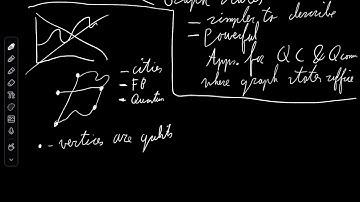 Graph states
- simpler to describe
- Powerful
Apps. for QC & Qcom
where graph states suffice
- cities
- FB
- Quantum
• - vertices are qubits